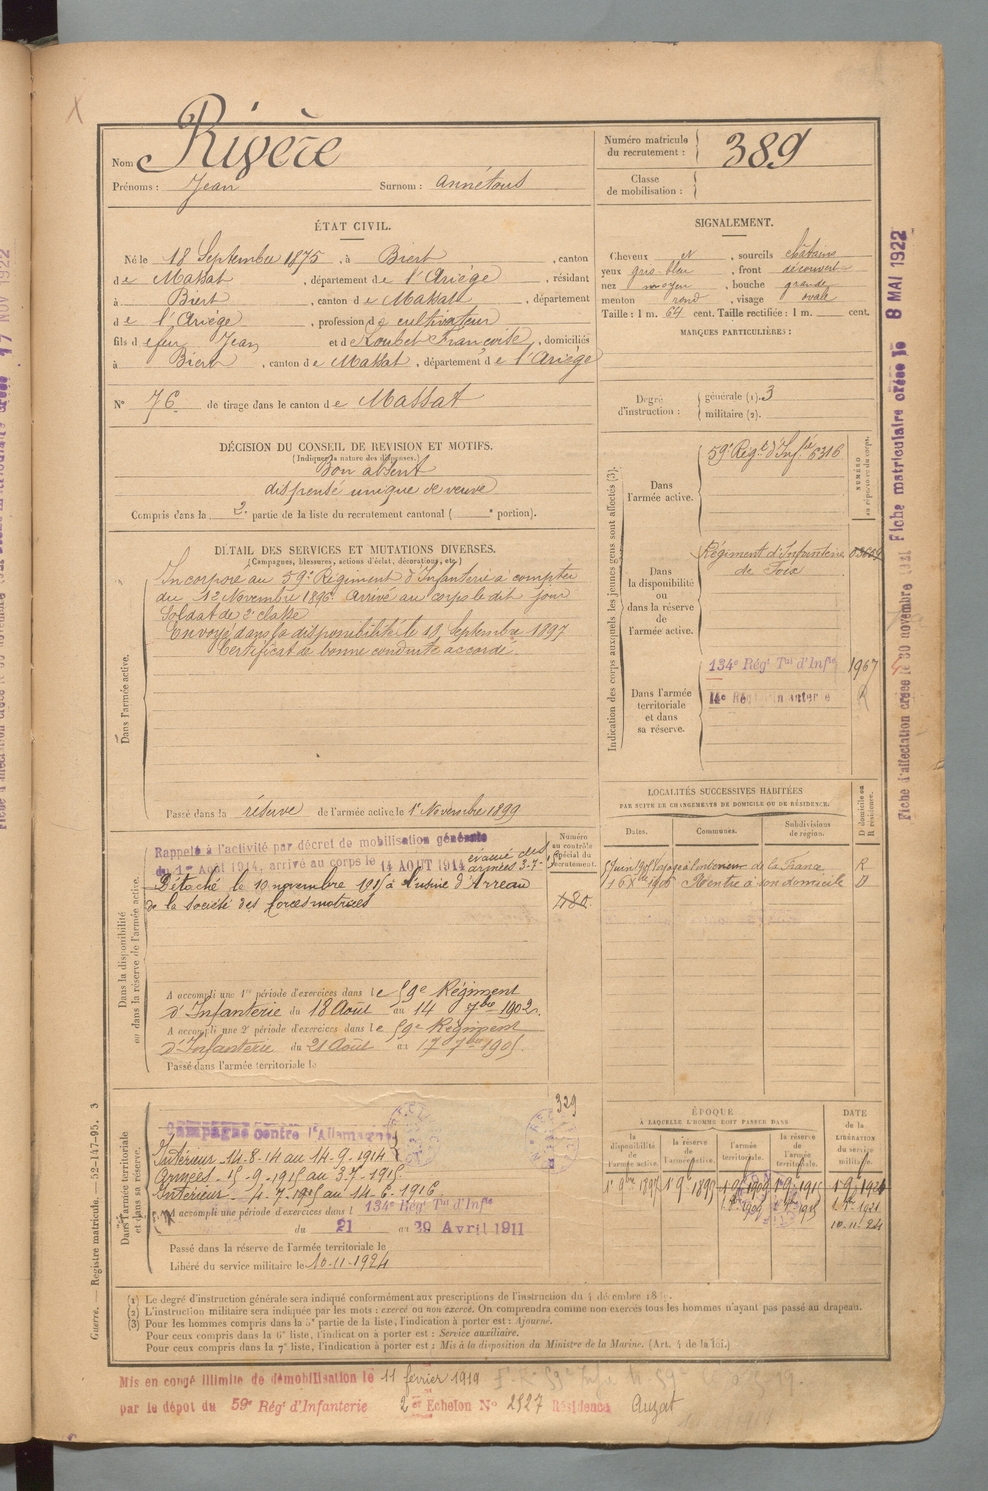 Nom Rivère
Prénoms : Jean Surnom : annétous
Numéro matricule du recrutement : 389
Classe de mobilisation :
ÉTAT CIVIL.
Né le 18 Septembre 1875, à Biert, canton
de Massat, département de l'Ariége, résidant
à Biert, canton de Massat, département
de l'Ariége, profession de cultivateur
fils de feu Jean et de Loubet Françoise, domiciliés
à Biert, canton de Massat, département de l'Ariége
N° 76 de tirage dans le canton de Massat
SIGNALEMENT.
Cheveux , sourcils châtains
yeux gris bleu, front découvert
nez moyen, bouche grande
menton rond, visage ovale
Taille : 1 m. 64 cent. Taille rectifiée : 1 m. cent.
MARQUES PARTICULIÈRES :
Degré d'instruction : générale (1). 3
militaire (2).
DÉCISION DU CONSEIL DE REVISION ET MOTIFS.
(Indiquer la nature des dispenses.)
Bon absent
dispensé unique de veuve
Compris dans la 2e partie de la liste du recrutement cantonal ( e portion).
DÉTAIL DES SERVICES ET MUTATIONS DIVERSES.
(Campagnes, blessures, actions d'éclat, décorations, etc.)
Dans l'armée active.
Incorporé au 59e Régiment d'Infanterie à compter
du 12 Novembre 1896. Arrivé au corps le dit jour
Soldat de 2e classe
Envoyé dans la disponibilité le 18 Septembre 1897
Certificat de bonne conduite accordé.
Passé dans la réserve de l'armée active le 1er Novembre 1899
Indication des corps auxquels les jeunes gens sont affectés (3).
NUMÉRO au répertoire du corps.
Dans l'armée active.
59e Régt d'Infie 6316
Dans la disponibilité ou dans la réserve de l'armée active.
Régiment d'Infanterie
de Foix
Dans l'armée territoriale et dans sa réserve.
134e Régt Tal d'Infie 1967
14e Rég
R
LOCALITÉS SUCCESSIVES HABITÉES
PAR SUITE DE CHANGEMENTS DE DOMICILE OU DE RÉSIDENCE.
Dates. Communes. Subdivisions de région. D domicile ou R résidence.
Voyage à l'intérieur de la France R
16 Xbre 1905 Rentré à son domicile D
Dans la disponibilité ou dans la réserve de l'armée active.
Numéro au contrôle spécial du recrutement.
Rappelé à l'activité par décret de mobilisation générale
du 1er Août 1914, arrivé au corps le 14 AOUT 1914 évacué des armées 3-7-15
Détaché le 10 novembre 1915 à l'usine d'Arreau
de la société des forces motrices
480
A accompli une 1re période d'exercices dans le 59e Régiment
d'Infanterie du 18 Août au 14 7bre 1902.
A accompli une 2e période d'exercices dans le 59e Régiment
d'Infanterie du 21 Août au 17 7bre 1905.
Passé dans l'armée territoriale le
Dans l'armée territoriale et dans sa réserve.
329
Campagne contre l'Allemagne
Intérieur 14-8-14 au 14-9-1914
Armées 15-9-1915 au 3-7-1915
Intérieur 4-7-1915 au 14-6-1916
A accompli une période d'exercices dans l 134e Régt Tal d'Infie
du 21 au 29 Avril 1911
Passé dans la réserve de l'armée territoriale le
Libéré du service militaire le 10-11-1924
ÉPOQUE
À LAQUELLE L'HOMME DOIT PASSER DANS
la disponibilité de l'armée active. la réserve de l'armée active. l'armée territoriale. la réserve de l'armée territoriale. DATE de la LIBÉRATION du service militaire.
10-11-24
(1) Le degré d'instruction générale sera indiqué conformément aux prescriptions de l'instruction du 4 décembre 18
(2) L'instruction militaire sera indiquée par les mots : exercé ou non exercé. On comprendra comme non exercés tous les hommes n'ayant pas passé au drapeau.
(3) Pour les hommes compris dans la 5e partie de la liste, l'indication à porter est : Ajourné.
Pour ceux compris dans la 6e liste, l'indication à porter est : Service auxiliaire.
Pour ceux compris dans la 7e liste, l'indication à porter est : Mis à la disposition du Ministre de la Marine. (Art. 4 de la loi.)
Mis en congé illimité de démobilisation le 11 février 1919
par le dépôt du 59e Régt d'Infanterie 2e Echelon N° 2527 Résidence Auzat
Guerre. — Registre matricule. — 52-147-95. 3
Fiche matriculaire créée le 8 MAI 1922
Fiche d'affectation créée le 30 novembre
17 NOV 1922